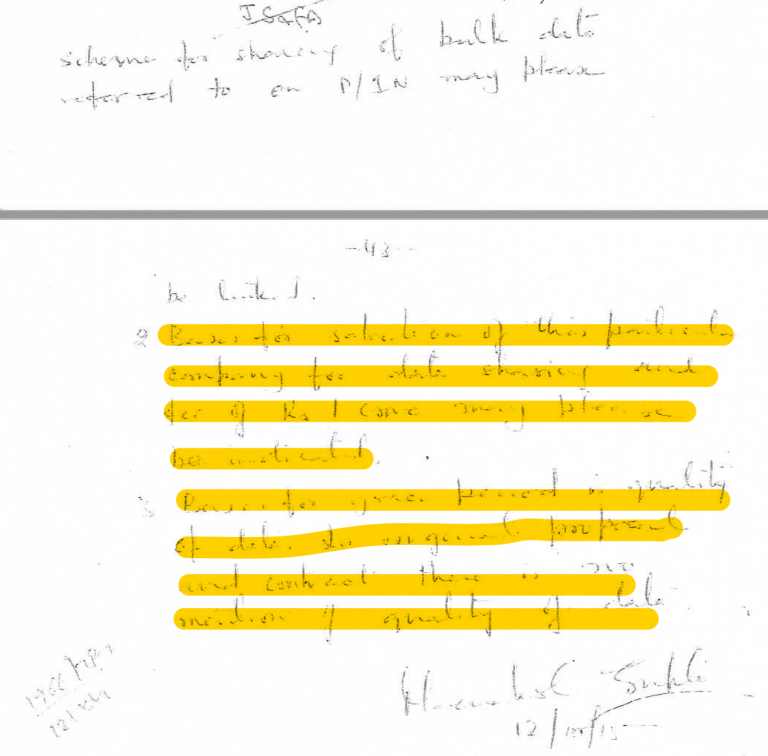 scheme for sharing of bulk data
referred to on P/1N may please
-43-
be linked.
2 Bases for selection of this particular
company for data sharing and
fee of Rs 1 crore may please
be indicated.
3 Bases for grace period is quality
of data. In original proposal
and contract there is no
mention of quality of data.
12/10/15